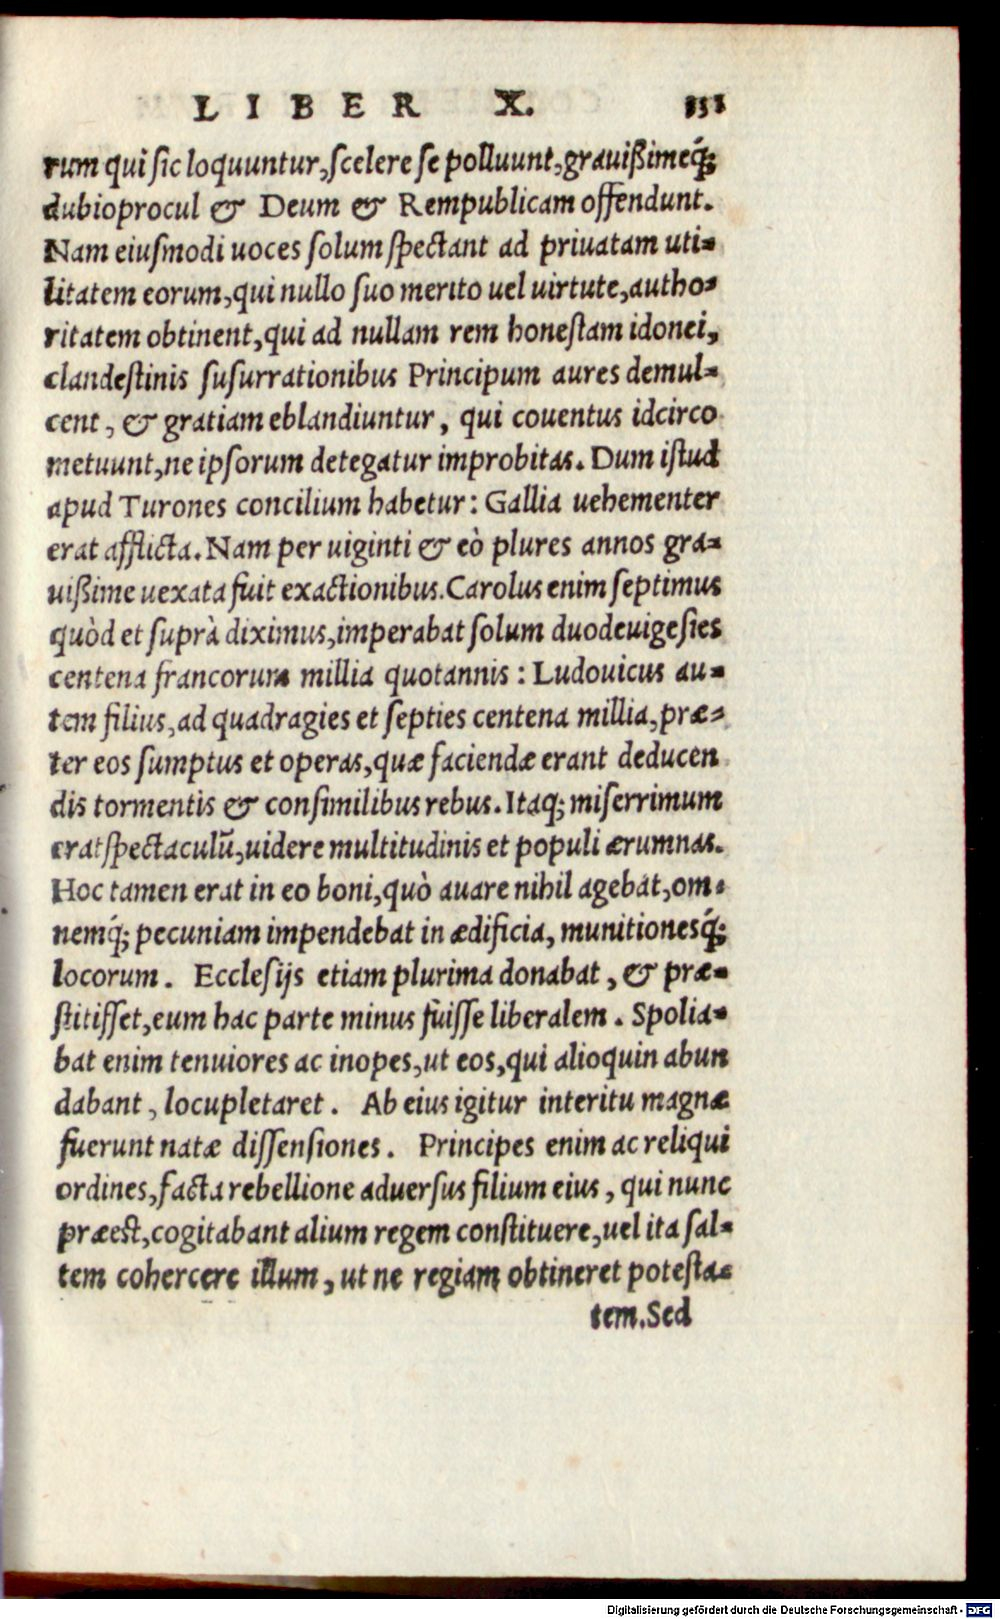 LIBER X. 151
rum qui sic loquuntur, scelere se polluunt, grauißimeq́;
dubioprocul & Deum & Rempublicam offendunt.
Nam eiusmodi uoces solum spectant ad priuatam uti-
litatem eorum, qui nullo suo merito uel uirtute, autho-
ritatem obtinent, qui ad nullam rem honestam idonei,
clandestinis susurrationibus Principum aures demul-
cent, & gratiam eblandiuntur, qui couentus idcirco
metuunt, ne ipsorum detegatur improbitas. Dum istud
apud Turones concilium habetur: Gallia uehementer
erat afflicta. Nam per uiginti & eò plures annos gra-
uißime uexata fuit exactionibus. Carolus enim septimus
quòd et suprà diximus, imperabat solum duodeuigesies
centena francorum millia quotannis: Ludouicus au-
tem filius, ad quadragies et septies centena millia, præ-
ter eos sumptus et operas, quæ faciendæ erant deducen
dis tormentis & consimilibus rebus. Itaq; miserrimum
erat spectaculũ, uidere multitudinis et populi ærumnas.
Hoc tamen erat in eo boni, quò auare nihil agebat, om-
nemq́; pecuniam impendebat in ædificia, munitionesq́;
locorum. Ecclesijs etiam plurima donabat, & præ-
stitisset, eum hac parte minus fuisse liberalem. Spolia-
bat enim tenuiores ac inopes, ut eos, qui alioquin abun
dabant, locupletaret. Ab eius igitur interitu magnæ
fuerunt natæ dissensiones. Principes enim ac reliqui
ordines, facta rebellione aduersus filium eius, qui nunc
præest, cogitabant alium regem constituere, uel ita sal-
tem cohercere illum, ut ne regiam obtineret potesta-
tem. Sed
Digitalisierung gefördert durch die Deutsche Forschungsgemeinschaft - DFG